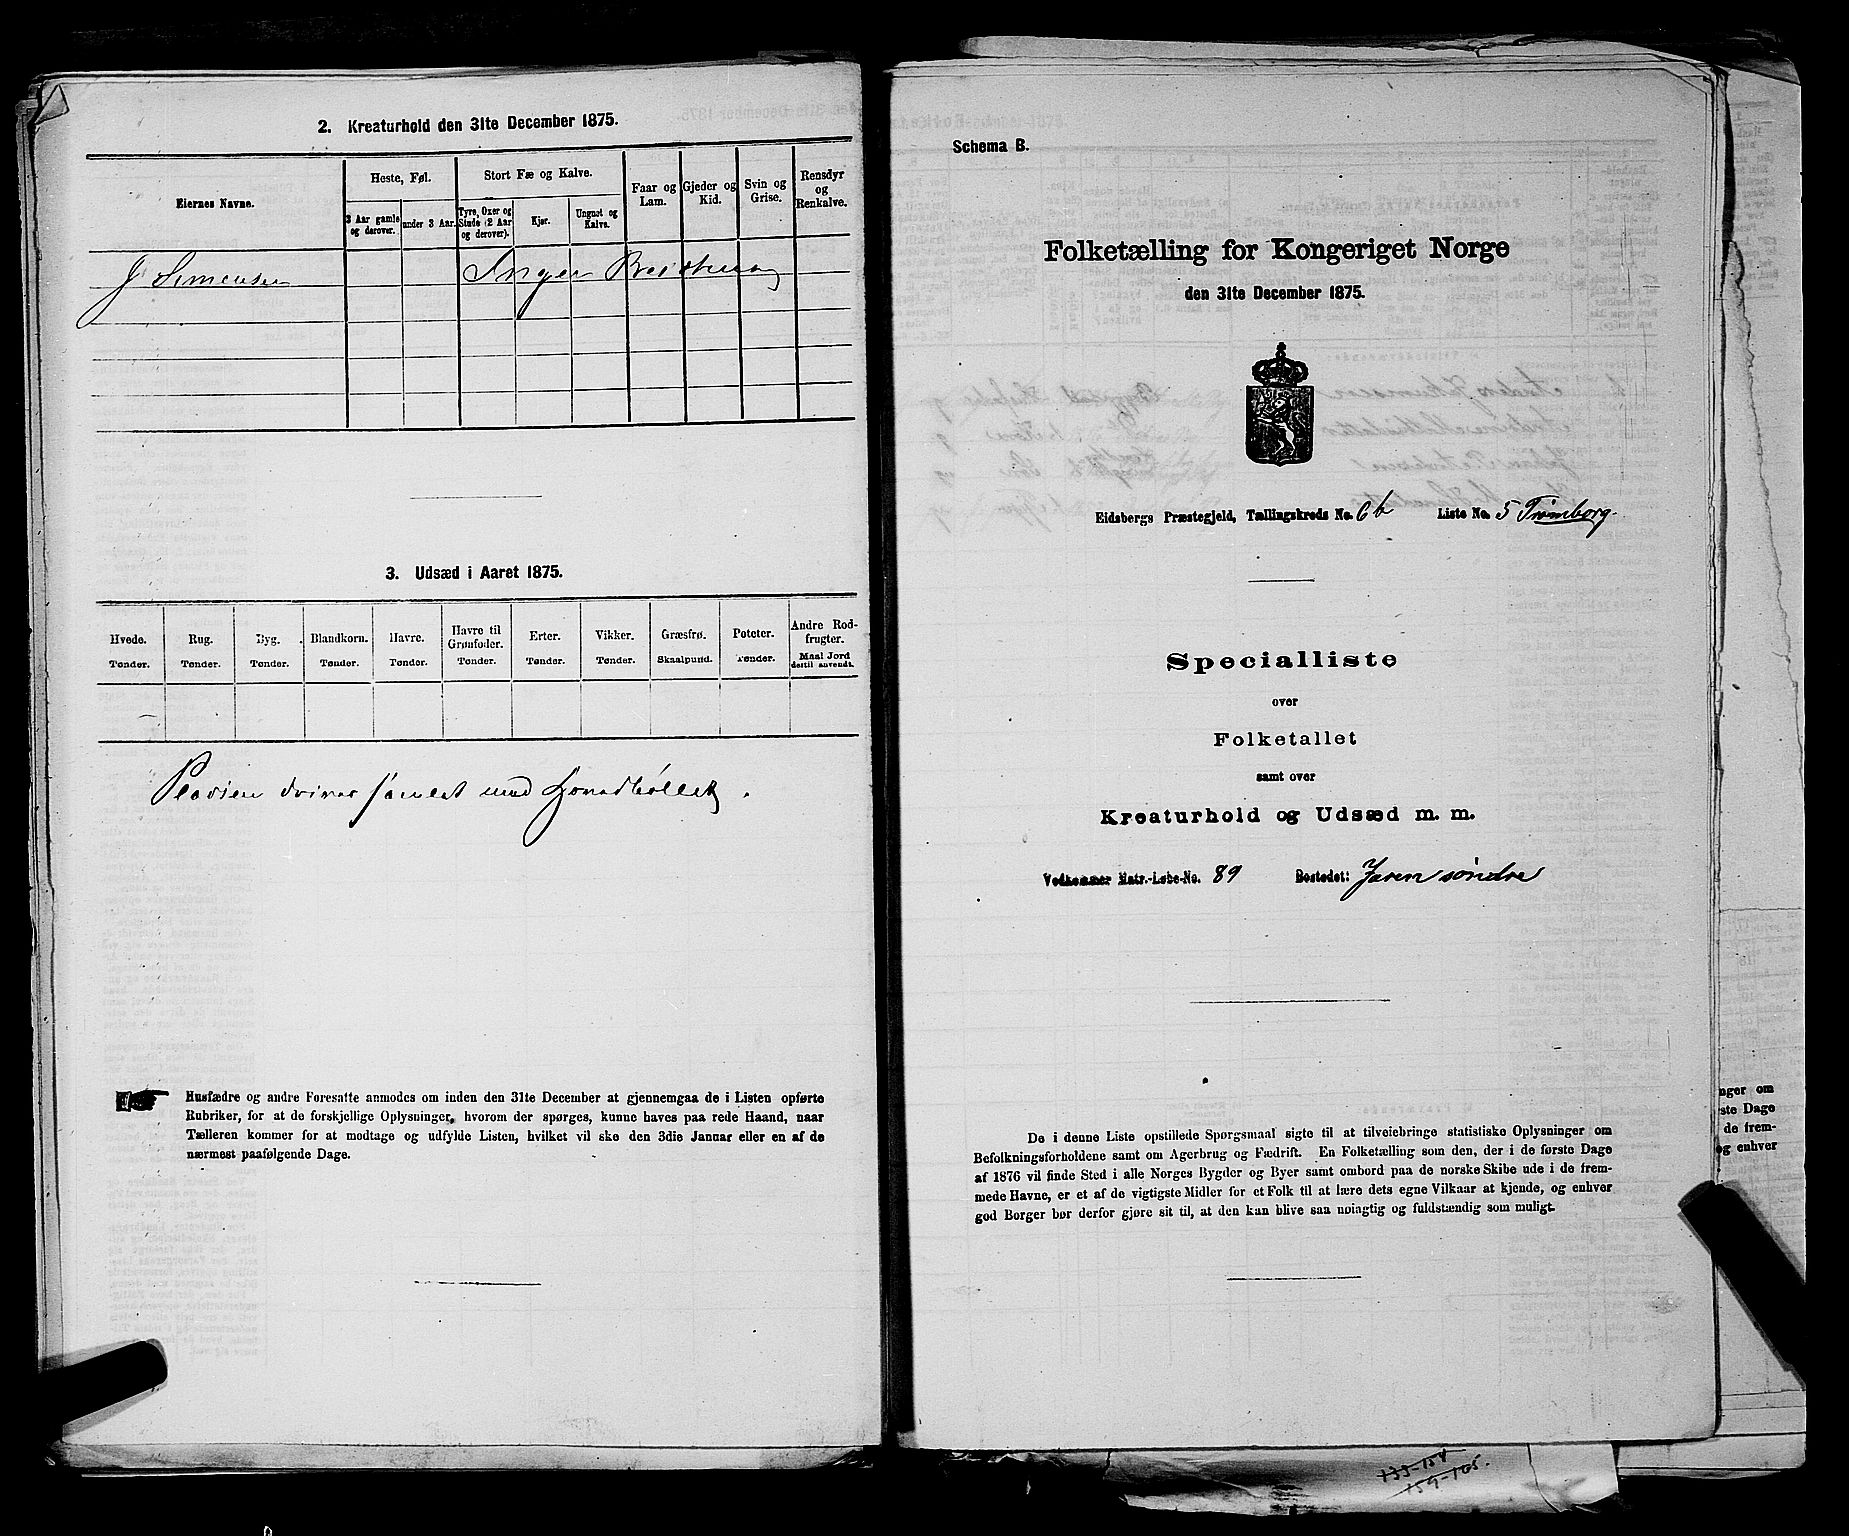 2. Kreaturhold den 31te December 1875.
Eiernes Navne.
Heste, Føl.
3 Aar gamle og derover.
under 3 Aar.
Stort Fæ og Kalve.
Tyre, Oxer og Stude (2 Aar og derover).
Kjør.
Ungnøt og Kalve.
Faar og Lam.
Gjeder og Kid.
Svin og Grise.
Rensdyr og Renkalve.
J Simensen Inger
3. Udsæd i Aaret 1875.
Hvede. Rug. Byg. Blandkorn. Havre. Havre til Grønfoder. Erter. Vikker. Græsfrø. Poteter. Andre Rodfrugter.
Tønder. Tønder. Tønder. Tønder. Tønder. Tønder. Tønder. Tønder. Skaalpund. Tønder. Maal Jord dertil anvendt.
med
Husfædre og andre Foresatte anmodes om inden den 31te December at gjennemgaa de i Listen opførte
Rubriker, for at de forskjellige Oplysninger, hvorom der spørges, kunne haves paa rede Haand, naar
Tælleren kommer for at modtage og udfylde Listen, hvilket vil ske den 3die Januar eller en af de
nærmest paafølgende Dage.
Schema B.
Folketælling for Kongeriget Norge
den 31te December 1875.
Eidsbergs Præstegjeld, Tællingskreds No. 6b Liste No. 5 Trømborg.
Specialliste
over
Folketallet
samt over
Kreaturhold og Udsæd m. m.
Vedkommer Matr.-Løbe-No. 89 Bostedet: Jaren søndre
De i denne Liste opstillede Spørgsmaal sigte til at tilveiebringe statistiske Oplysninger om
Befolkningsforholdene samt om Agerbrug og Fædrift. En Folketælling som den, der i de første Dage
af 1876 vil finde Sted i alle Norges Bygder og Byer samt ombord paa de norske Skibe ude i de frem-
mede Havne, er et af de vigtigste Midler for et Folk til at lære dets egne Vilkaar at kjende, og enhver
god Borger bør derfor gjøre sit til, at den kan blive saa nøiagtig og fuldstændig som muligt.
nger om
ste Dage
de frem-
og enhver
133-154
159-165.